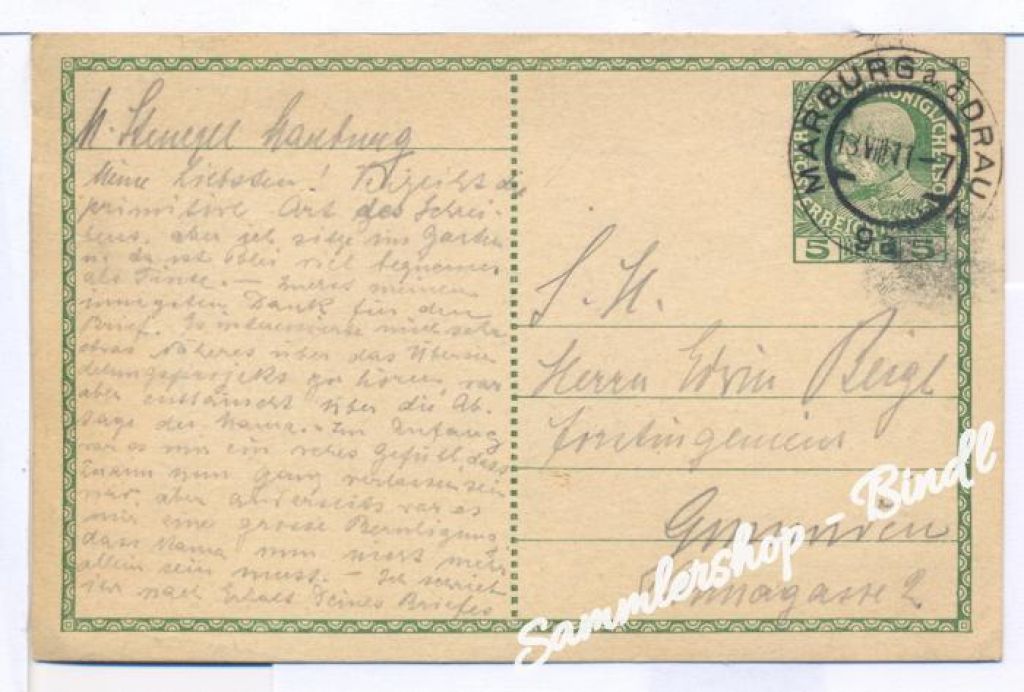 Stenzel Marburg
Meine Liebsten! Verzeiht die
primitive Art des Schrei-
bens, aber ich sitze im Garten
u. da ist Blei viel bequemer
als Tinte. – Zuerst meinen
innigsten Dank für den
Brief. Es interessierte mich sehr
etwas Näheres über das Übersie
delungsprojekt zu hören, war
aber enttäuscht über die Ab-
sage der Mama. – Im Anfang
war es mir ein wehes Gefühl, dass
nun ganz verlassen sein
aber anderseits war es
mir eine grosse Beruhigung
dass Mama nun nicht mehr
allein sein muss. – Ich schrieb
ihr nach Erhalt Deines Briefes
MARBURG a. d. DRAU
13.VIII.11-7
9a
5 5
S. H.
Herrn Edwin Beigl
Forstingenieur
Gmunden
2
Sammlershop - Bindl